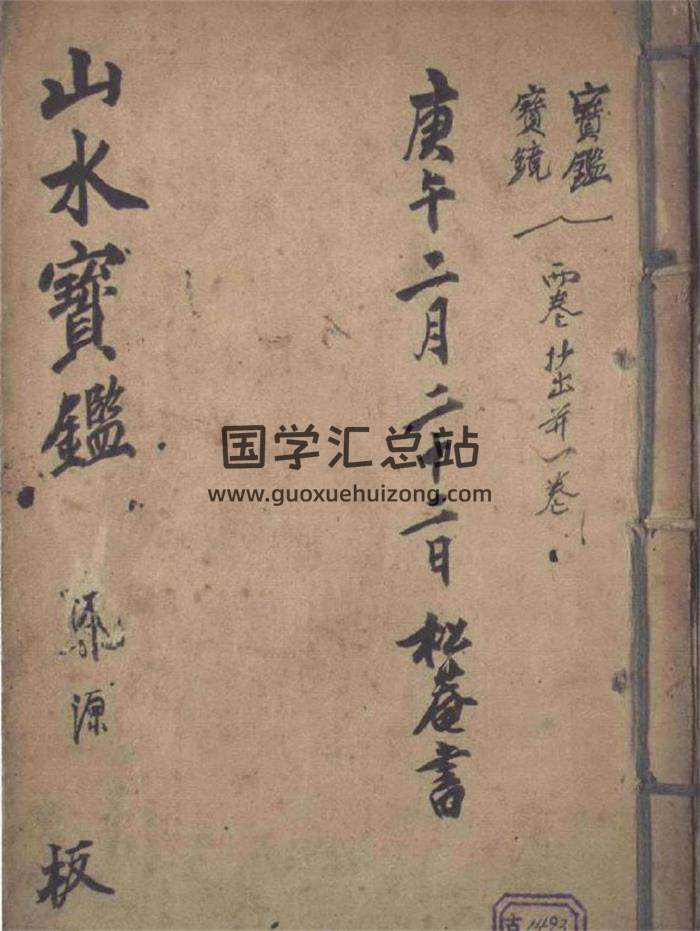 寶鑑
寶鏡
兩卷抄出并一卷
庚午二月二十二日 松菴書
山水寶鑑
源
板
国学汇总站
www.guoxuehuizong.com
古1493